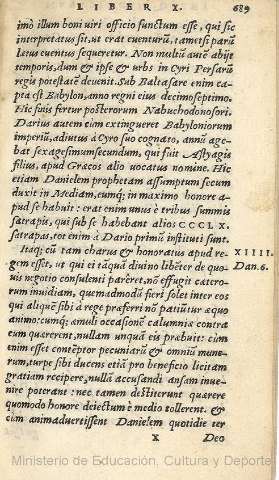 LIBER X. 689
imò illum boni uiri officio functum esse, qui sic
interpretatus sit, ut erat euenturũ, tametsi parũ
lætus euentus sequeretur. Non multũ autẽ abijt
temporis, dum & ipse & urbs in Cyri Persarũ
regis potestatẽ deuenit. Sub Baltasare enim ca
pta est Babylon, anno regni eius decimoseptimo.
Hic finis fertur posterorum Nabuchodonosori.
Darius autem cũ extingueret Babyloniorum
imperiũ, adiutus à Cyro suo cognato, annũ age-
bat sexagesimumsecundum, qui fuit Astyagis
filius, apud Græcos alio uocatus nomine. Hic
etiam Danielem prophetam assumptum secum
duxit in Mediam, eumq; in maximo honore a-
pud se habuit: erat enim unus è tribus summis
satrapis, qui sub se habebant alios CCCLX.
satrapas, tot enim à Dario primũ instituti sunt.
Itaq; cũ tam charus & honoratus apud re- XIIII.
gem esset, ut qui ei tãquã diuino libẽter de quo- Dan.6.
uis negotio consulenti pareret, nõ effugit cætero-
rum inuidiam, quemadmodũ fieri solet inter eos
qui aliquẽ sibi à rege præferri nõ patiũtur æquo
animo: cumq; amuli occasionẽ calumniæ contra
eum quærerent, nullam unquã eis præbuit: cùm
enim esset contẽptor pecuniarũ & omniũ mune-
rum, turpe sibi ducens etiã pro beneficio licitam
gratiam recipere, nullã accusandi ansam inue-
nire poterant: nec tamen destiterunt quærere
quomodo honore deiectum è medio tollerent. &
cùm animaduertissent Danielem quotidie ter
X Deo
Ministerio de Educación, Cultura y Deporte